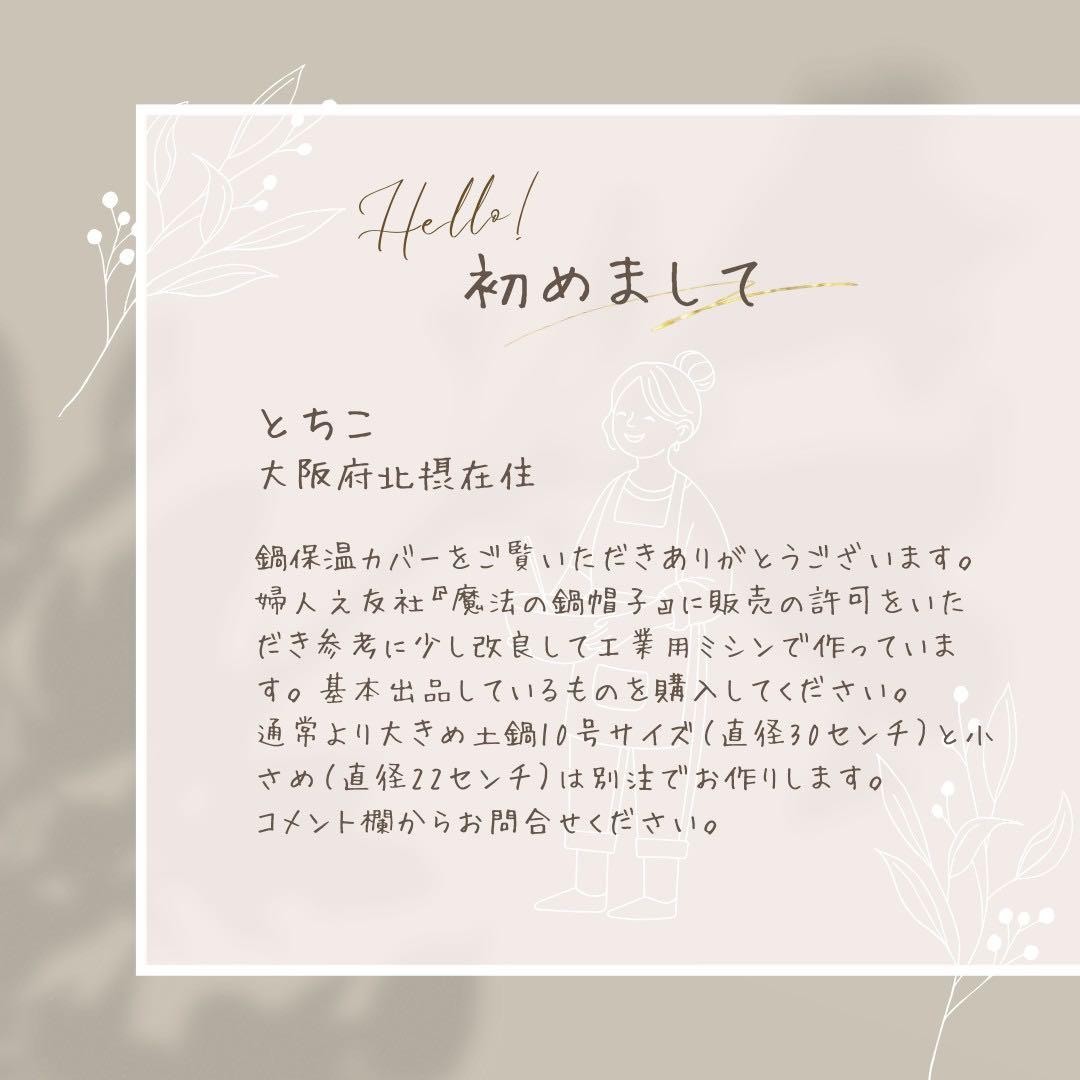 Hello!
初めまして
とちこ
大阪府北摂在住
鍋保温カバーをご覧いただきありがとうございます。
婦人之友社『魔法の鍋帽子』に販売の許可をいた
だき参考に少し改良して工業用ミシンで作っていま
す。基本出品しているものを購入してください。
通常より大きめ土鍋10号サイズ(直径30センチ)と小
さめ(直径22センチ)は別注でお作りします。
コメント欄からお問合せください。